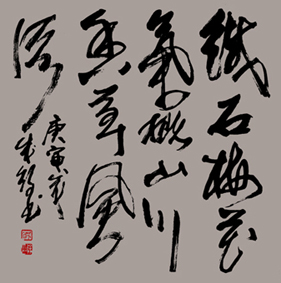 鐵石梅花
氣概山川
香草風
流
庚寅年
書